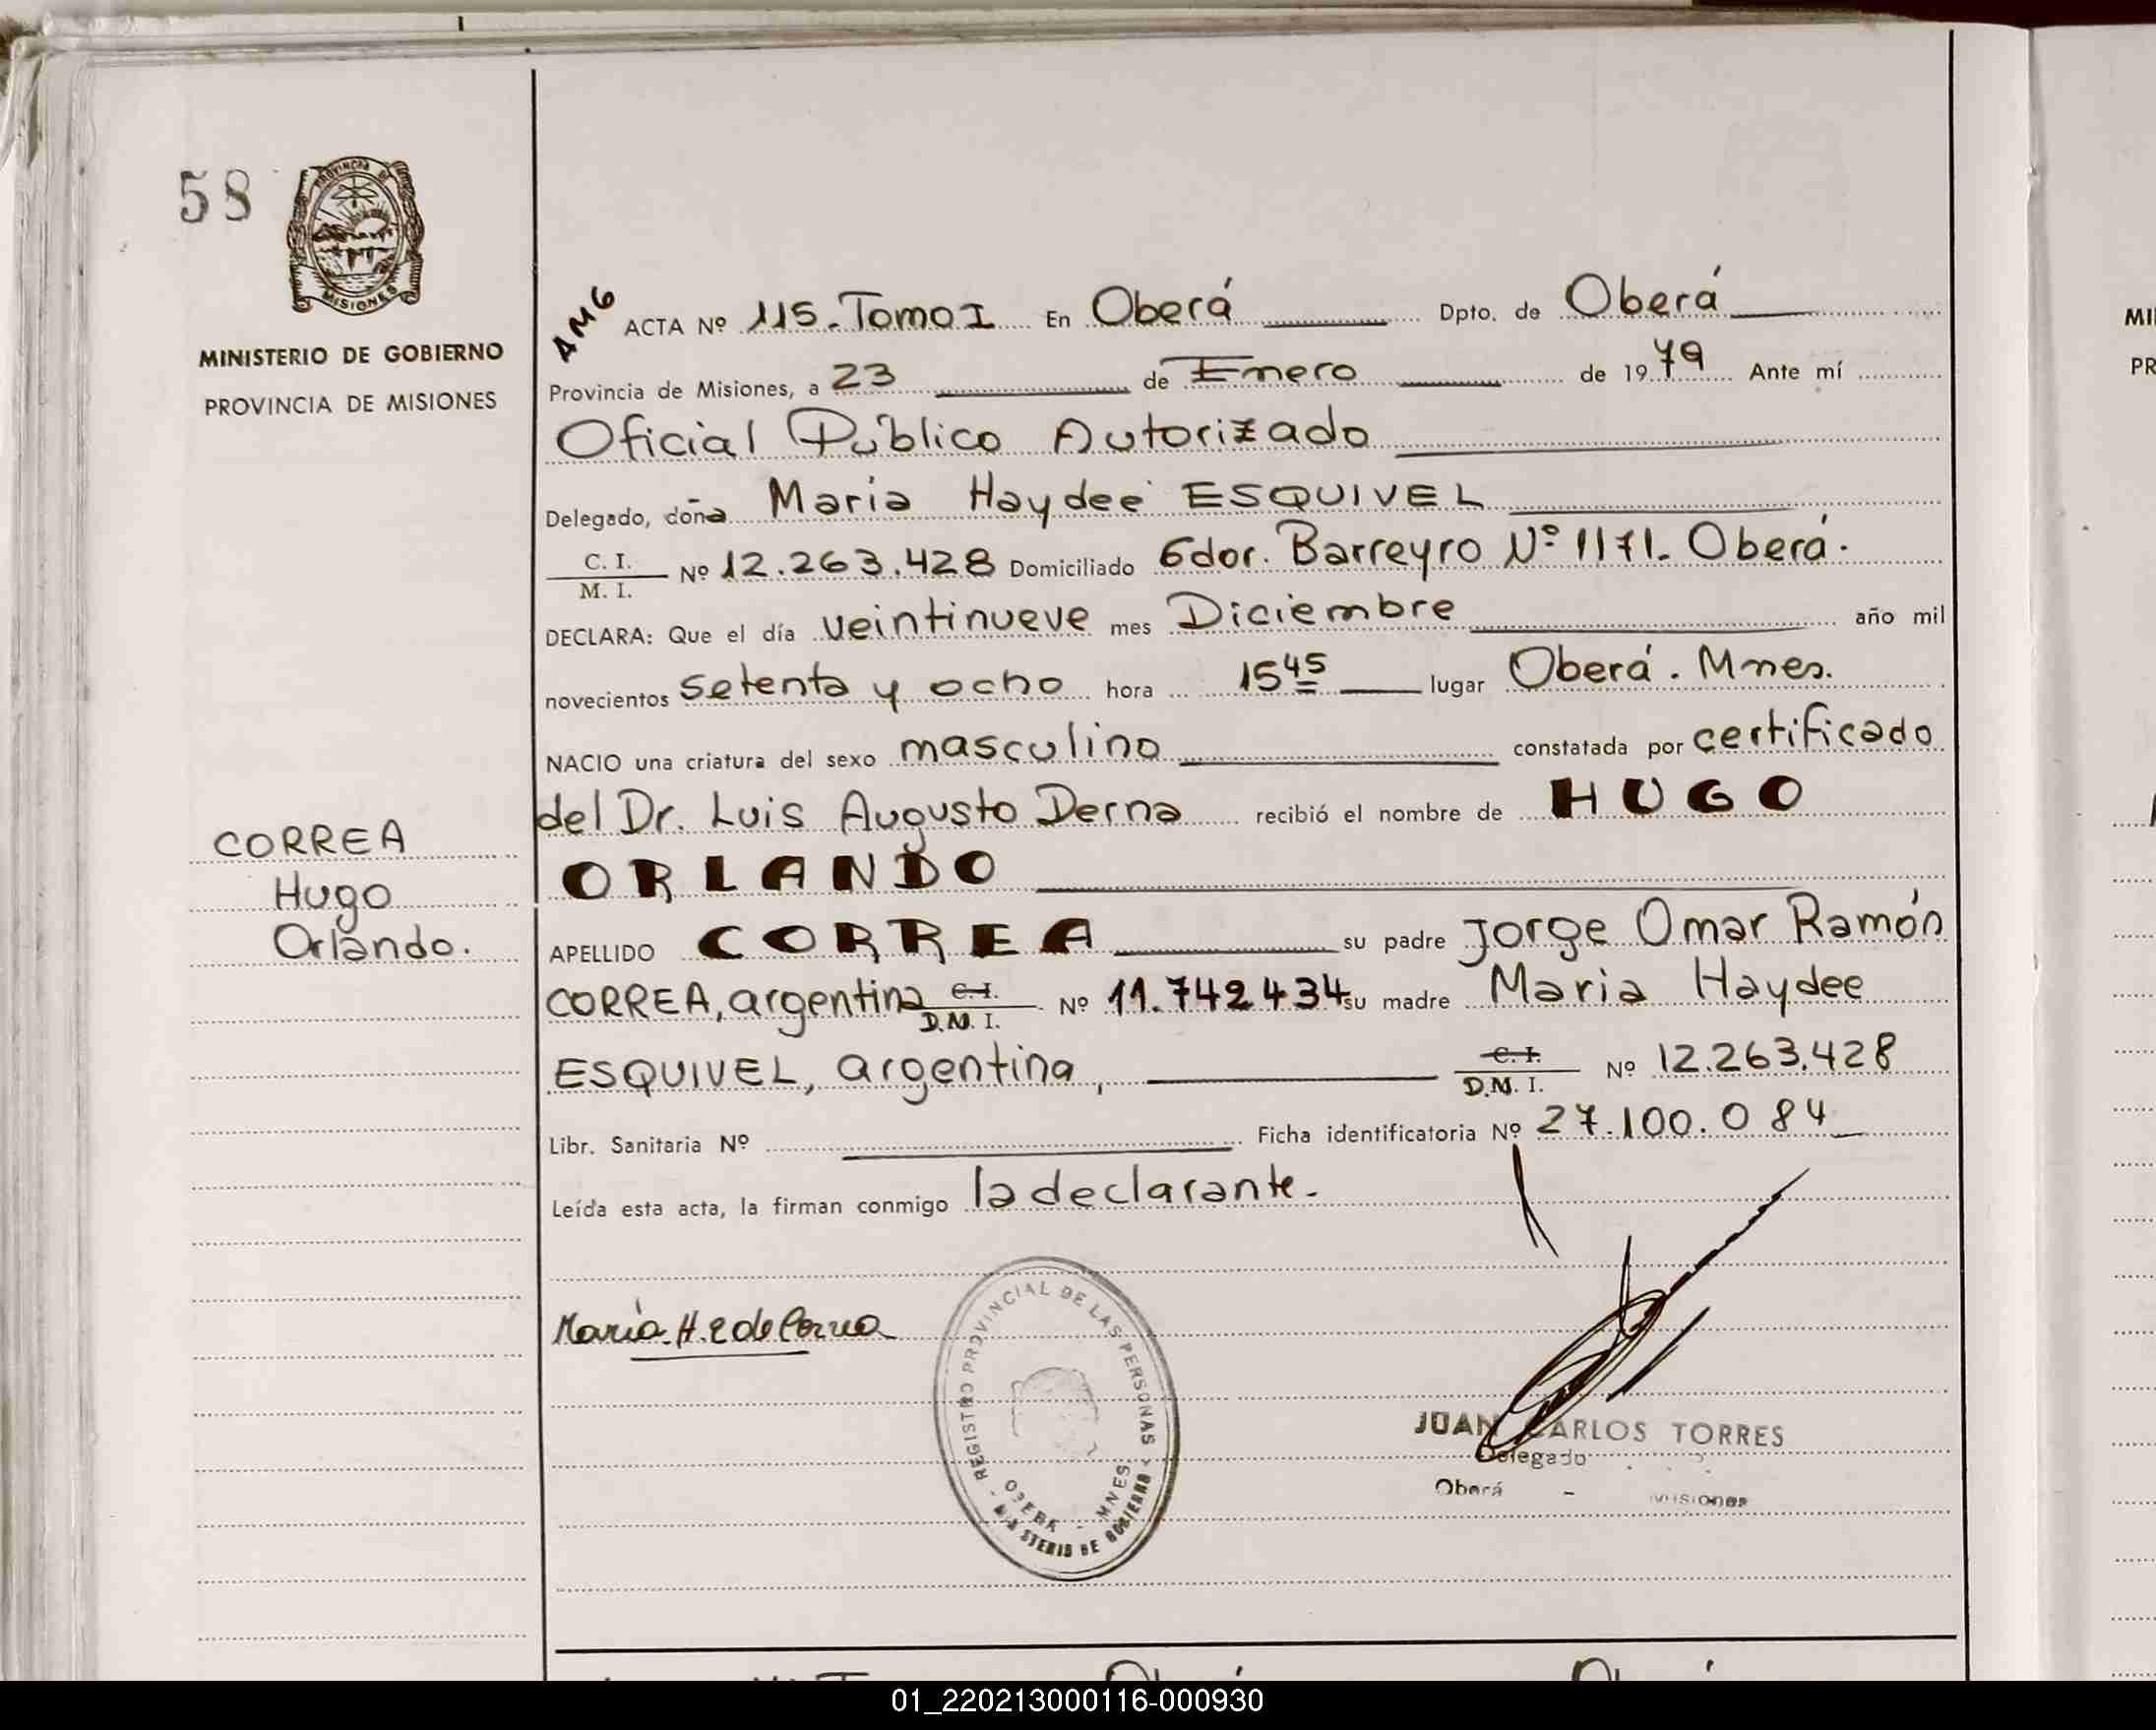 58
PROVINCIA DE
MISIONES
MINISTERIO DE GOBIERNO
PROVINCIA DE MISIONES
CORREA
Hugo
Orlando.
AMG
ACTA Nº 115.Tomo I En Oberá Dpto. de Oberá
Provincia de Misiones, a 23 de Enero de 1979 Ante mí
Oficial Público Autorizado
Delegado, doña Maria Haydeé ESQUIVEL
C. I.
M. I.
Nº 12.263.428 Domiciliado Gdor. Barreyro Nº 1171. Oberá.
DECLARA: Que el día veintinueve mes Diciembre año mil
novecientos setenta y ocho hora 15 45 lugar Oberá. Mnes.
NACIO una criatura del sexo masculino constatada por certificado
del Dr. Luis Augusto Derna recibió el nombre de HUGO
ORLANDO
APELLIDO CORREA su padre Jorge Omar Ramón
CORREA, argentina C.I. D.M. I. Nº 11.742434 su madre Maria Haydee
ESQUIVEL, argentina, C. I. D.M. I. Nº 12.263.428
Libr. Sanitaria Nº Ficha identificatoria Nº 27.100.084
Leída esta acta, la firman conmigo la declarante.
María H. E de Correa
REGISTRO PROVINCIAL DE LAS PERSONAS
OBERA - MNES.
MINISTERIO DE GOBIERNO
JUAN CARLOS TORRES
Delegado
Oberá - Misiones
MI
PR
01_220213000116-000930